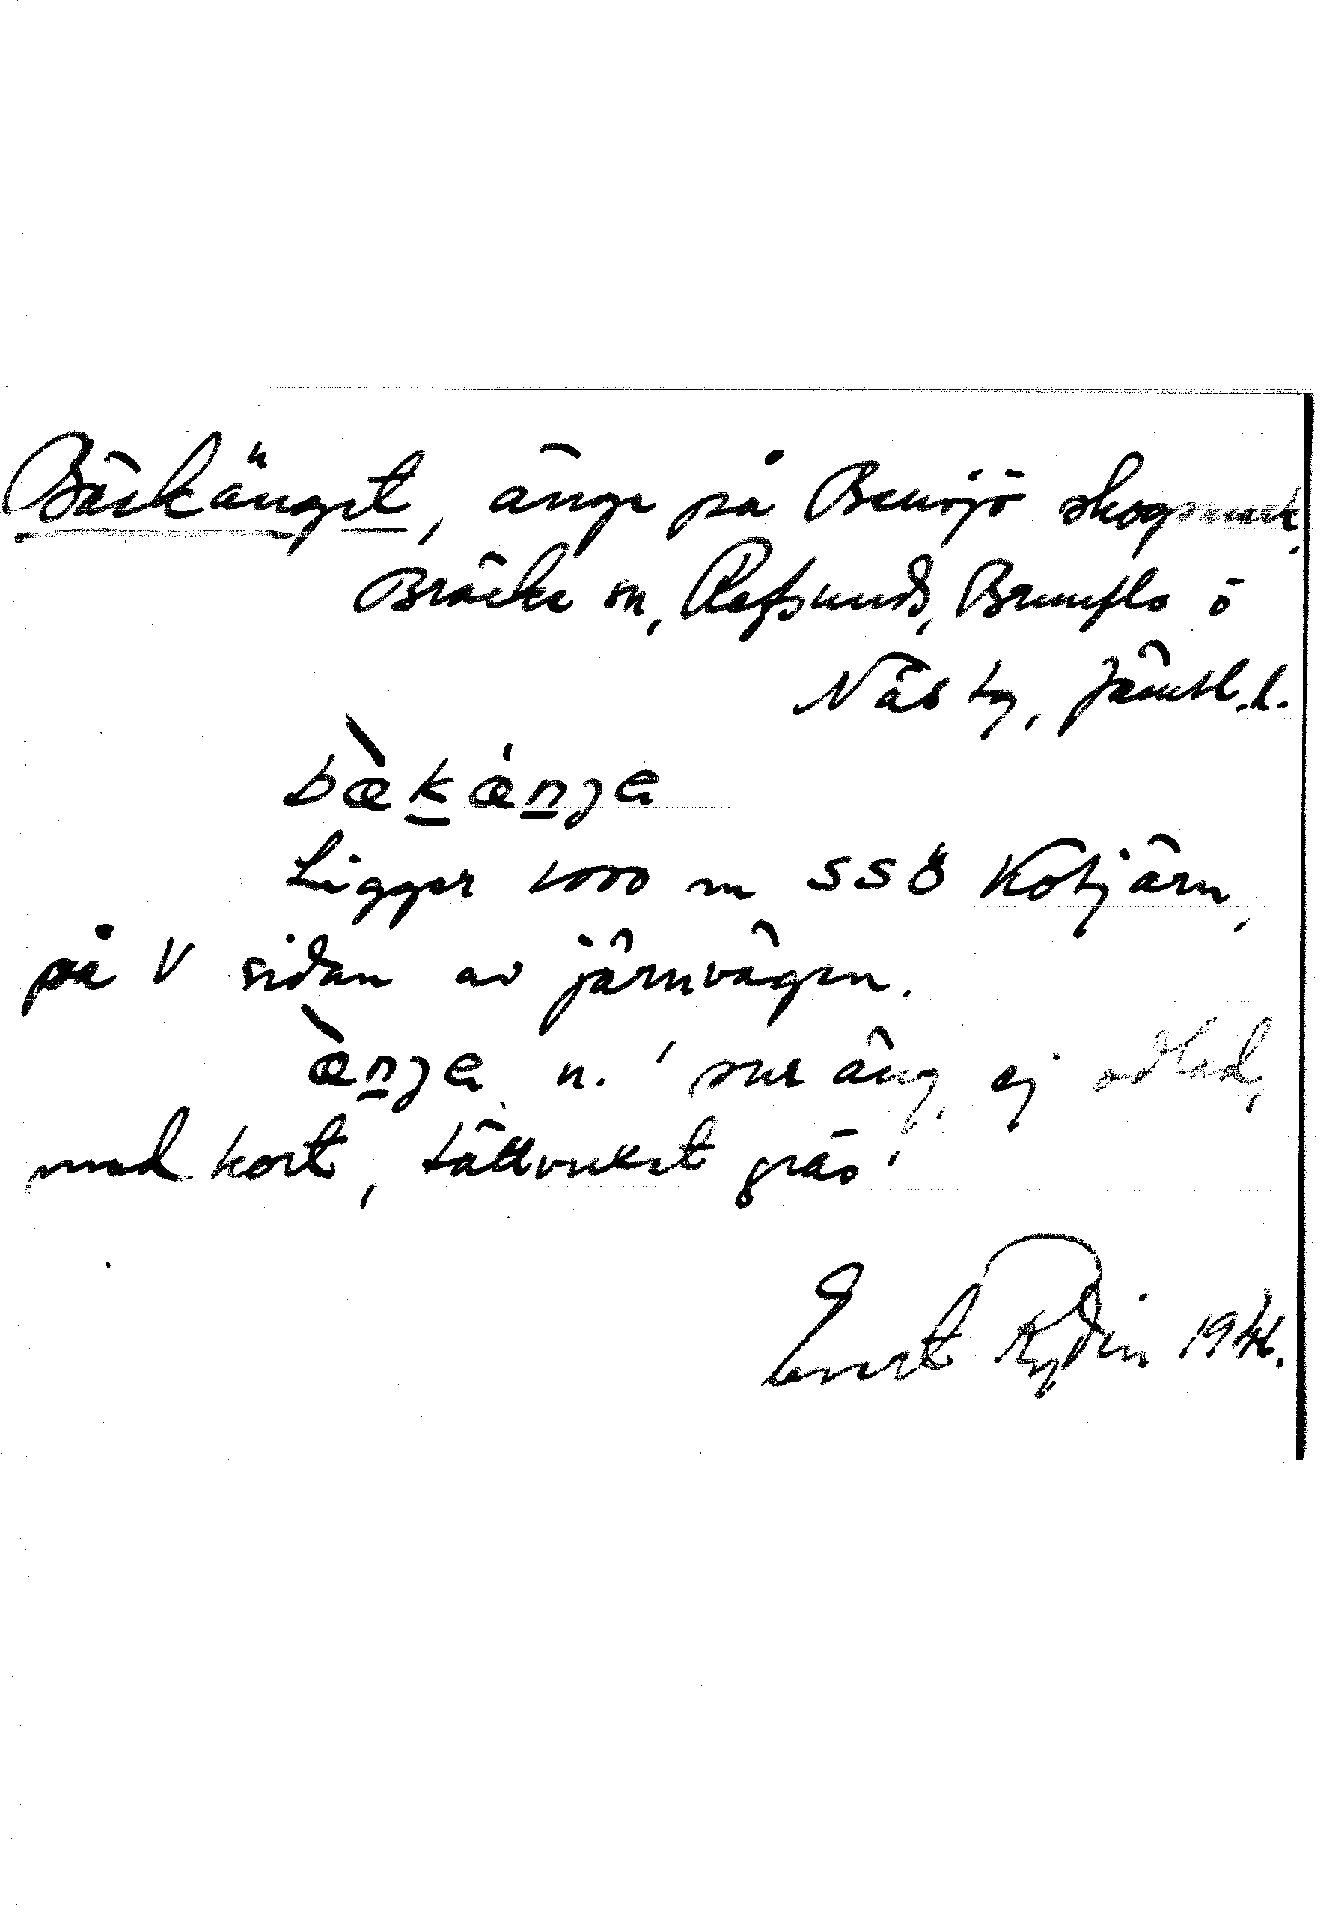 Bäckänget, änge på Bensjö skogsmark.
Bräcke sn, Refsunds, Brunflo o
Näs tg, Jämtl.l.
bæ̀k̲æ̀n̲ȷe
Ligger 1000 m SSÖ Kotjärn,
på V sidan av järnvägen.
æ̀n̲ȷe n. 'sur äng, ej odlad,
med kort, tättvuxet gräs'
Ernst Rydin 1941.